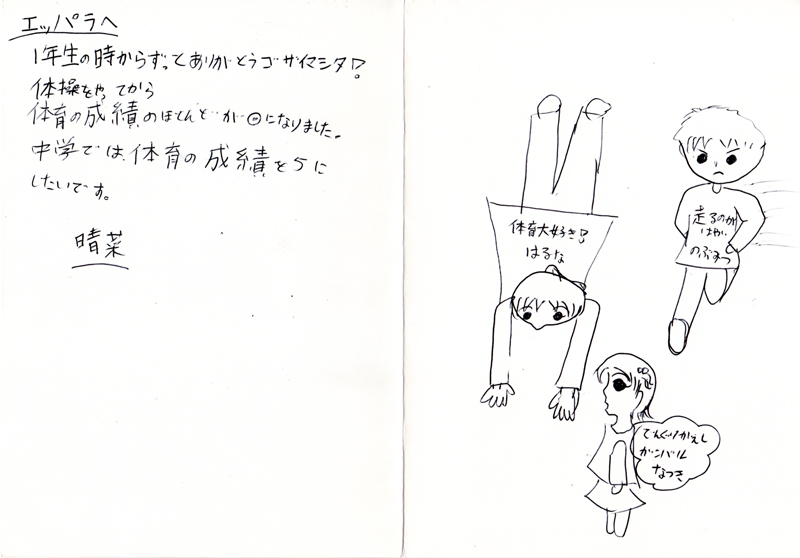 エッパラへ
1年生の時からずっとありがとうゴザイマシタ!?
体操をやってから
体育の成績のほとんどが◎になりました。
中学では、体育の成績を5に
したいです。
晴菜
体育大好き!?
はるな
走るのが
はやい
のぶみつ
でんぐりかえし
ガンバル
なつき